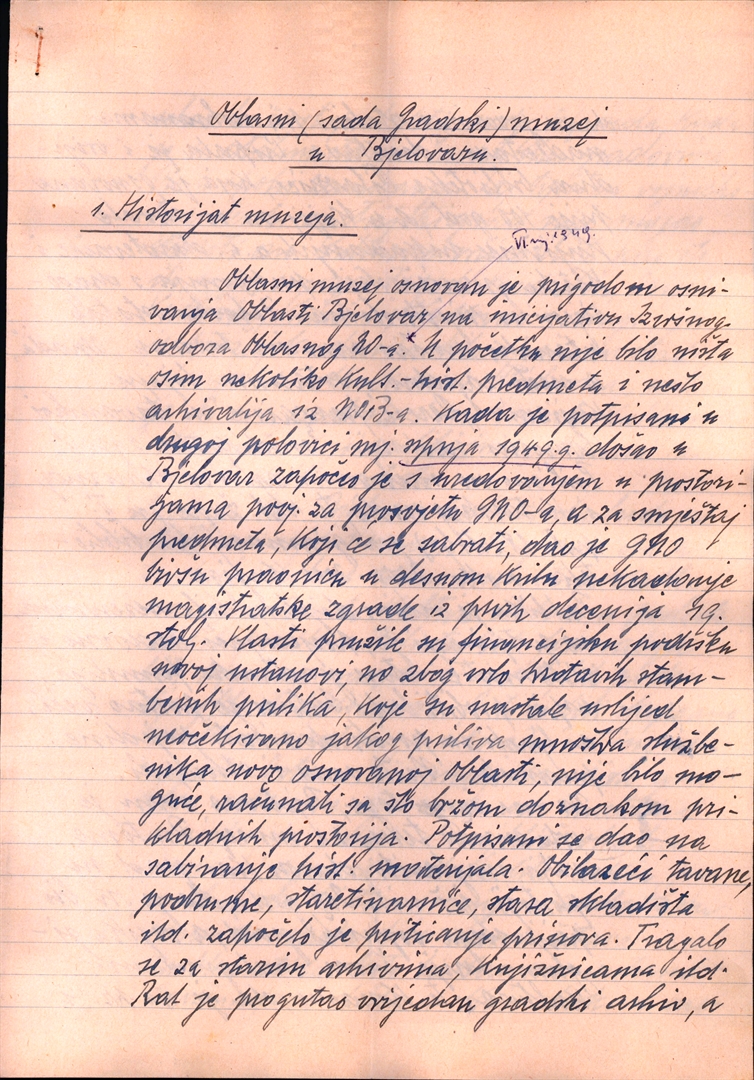 Oblasni (sada Gradski) muzej
u Bjelovaru.
1. Historijat muzeja.
VI. mj. 1949.
Oblasni muzej osnovan je prigodom osni-
vanja Oblasti Bjelovar na inicijativu Izvršnog
odbora Oblasnog NO-a. U početku nije bilo ništa
osim nekoliko kult.-hist. predmeta i nešto
arhivalija iz NOB-a. Kada je potpisani u
drugoj polovici mj. rujna 1949.g. došao u
Bjelovar započeo je s uredovanjem u prostori-
jama povj. za prosvjetu GNO-a, a za smještaj
predmeta, koji će se sabrati, dao je GNO
bivšu praonicu u desnom krilu nekadanje
magistratske zgrade iz prvih decenija 19.
stolj. Vlasti pružile su financijsku podršku
novoj ustanovi, no zbog vrlo hrđavih stam-
benih prilika, koje su nastale uslijed
neočekivano jakog priliva mnoštva službe-
nika novo osnovanoj Oblasti, nije bilo mo-
guće, računati sa što bržom doznakom pri-
kladnih prostorija. Potpisani se dao na
sabiranje hist. materijala. Obilazeći tavane,
podrume, staretinarnice, stara skladišta
itd. započelo je priticanje prinova. Tragalo
se za starim arhivima, knjižnicama itd.
Rat je progutao vrijedan gradski arhiv, a